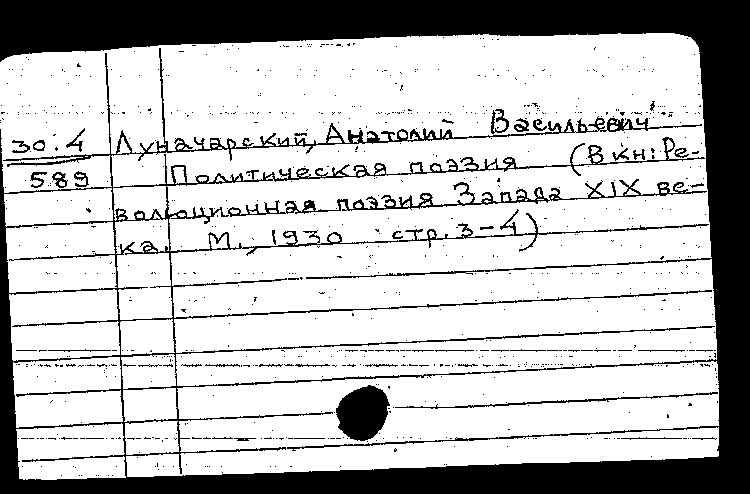 30.4 Луначарский, Анатолий Васильевич
589 Политическая поэзия (В кн: Ре-
волюционная поэзия Запада XIX ве-
ка. М., 1930 стр. 3-4)